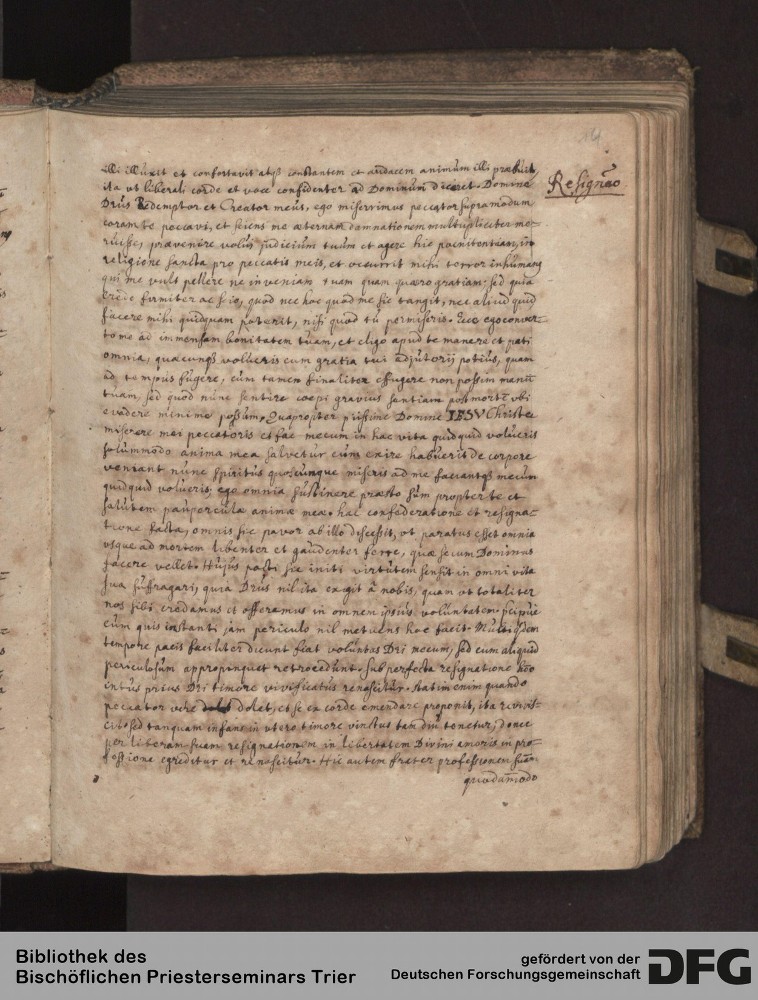 14
illi illuxit et confortavit atqß constantem et audacem animum illi præbuit,
ita ut liberali corde et voce confidenter ad Dominum diceret. Domine
Drûs Redemptor et Creator meus, ego miserrimus peccator supramodum
coram te peccavi, et sciens me æternam damnationem multipliciter me-
ruisse, prævenire volui judicium tuum et agere hic pœnitentiam, in
religione sancta pro peccatis meis, et occurrit mihi terror inhumanq
qui me vult pellere ne inveniam tuam quam quæro gratiam. sed quia
credo firmiter ac scio, quod nec hoc quod me sic tangit, nec aliud quid
facere mihi quidquam poterit, nisi quod tû permiseris. Ecce ego conver=
to me ad immensam bonitatem tuam, et eligo apud te manere et pati
omnia, quæcunqß volueris cum gratia tui adjutorij potius, quam
ad tempus fugere, cûm tamen finaliter effugere non possim manû
tuam, sed quod nunc sentire coepi gravius sentiam post mortē ubi
evadere minime possum. Quapropter piissime Domine IESV Christe
miserere mei peccatoris et fac mecum in hac vita quidquid volueris
solummodo anima mea salvetur cûm exire habuerit de corpore
veniant nunc spiritus quoscunque miseris ad me faciantqß mecum
quidquid volueris. ego omnia sustinere præsto sum propter te et
salutem pauperculæ animæ meæ. hac confederatione et resigna=
tione facta, omnis sic pavor ab illo discessit, vt paratus esset omnia
vsque ad mortem libenter et gaudenter ferre, quæ secum Dominus
facere vellet. Hujus pacti sic initi virtutem sensit in omni vita
sua suffragari, quia Drûs nil ita exigit â nobis, quam vt totaliter
nos sibi credamus et offeramus in omnem ipsius voluntatem. pcipue
cûm quis instanti jam periculo nil metuens hoc facit. Multi qdem
tempore pacis faciliter dicunt fiat voluntas Dri mecum, sed cum aliquid
periculosum appropinquet retrocedunt. Sub perfecta resignatione hōo
intus prius Dri timore vivificatus renascitur. statim enim quando
peccator vere dolet, et se ex corde emendare proponit, ita revivis=
cit sed tanquam infans in utero timore vinctus tam diu tenetur, donec
per liberam suam resignationem in libertatem Divini amoris in pro=
fessione egreditur et renascitur. Hic autem frater professionem suam
quodam̄odo
Resignāo
Bibliothek des
Bischöflichen Priesterseminars Trier
gefördert von der
Deutschen Forschungsgemeinschaft
DFG